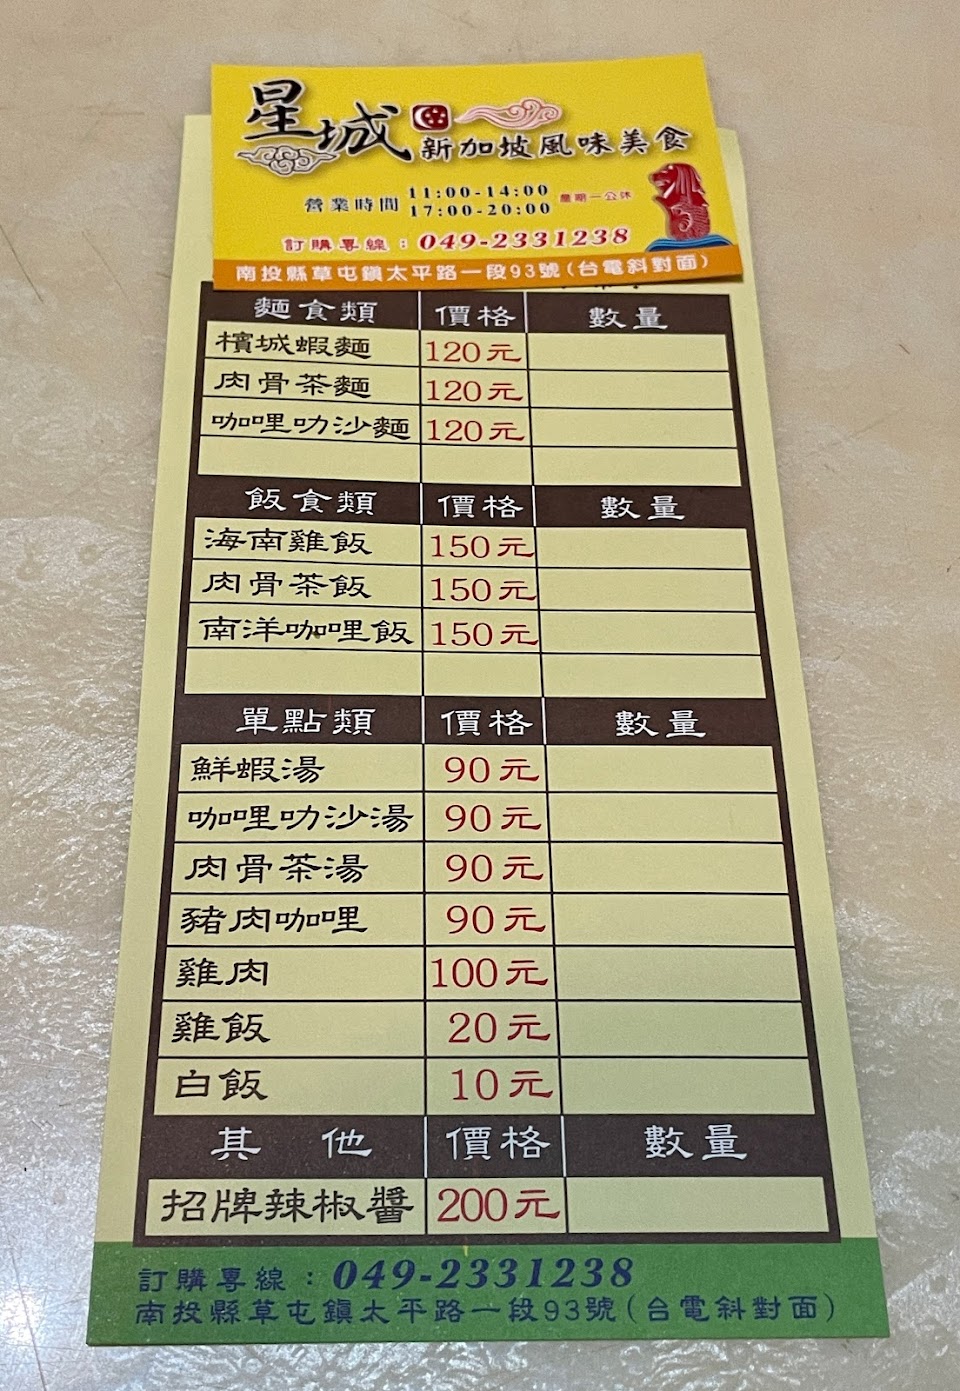 星城 新加坡風味美食
營業時間 11:00-14:00 17:00-20:00 星期一公休
訂購專線：049-2331238
南投縣草屯鎮太平路一段93號(台電斜對面)
麵食類 價格 數量
檳城蝦麵 120元
肉骨茶麵 120元
咖哩叻沙麵 120元
飯食類 價格 數量
海南雞飯 150元
肉骨茶飯 150元
南洋咖哩飯 150元
單點類 價格 數量
鮮蝦湯 90元
咖哩叻沙湯 90元
肉骨茶湯 90元
豬肉咖哩 90元
雞肉 100元
雞飯 20元
白飯 10元
其他 價格 數量
招牌辣椒醬 200元
訂購專線：049-2331238
南投縣草屯鎮太平路一段93號(台電斜對面)